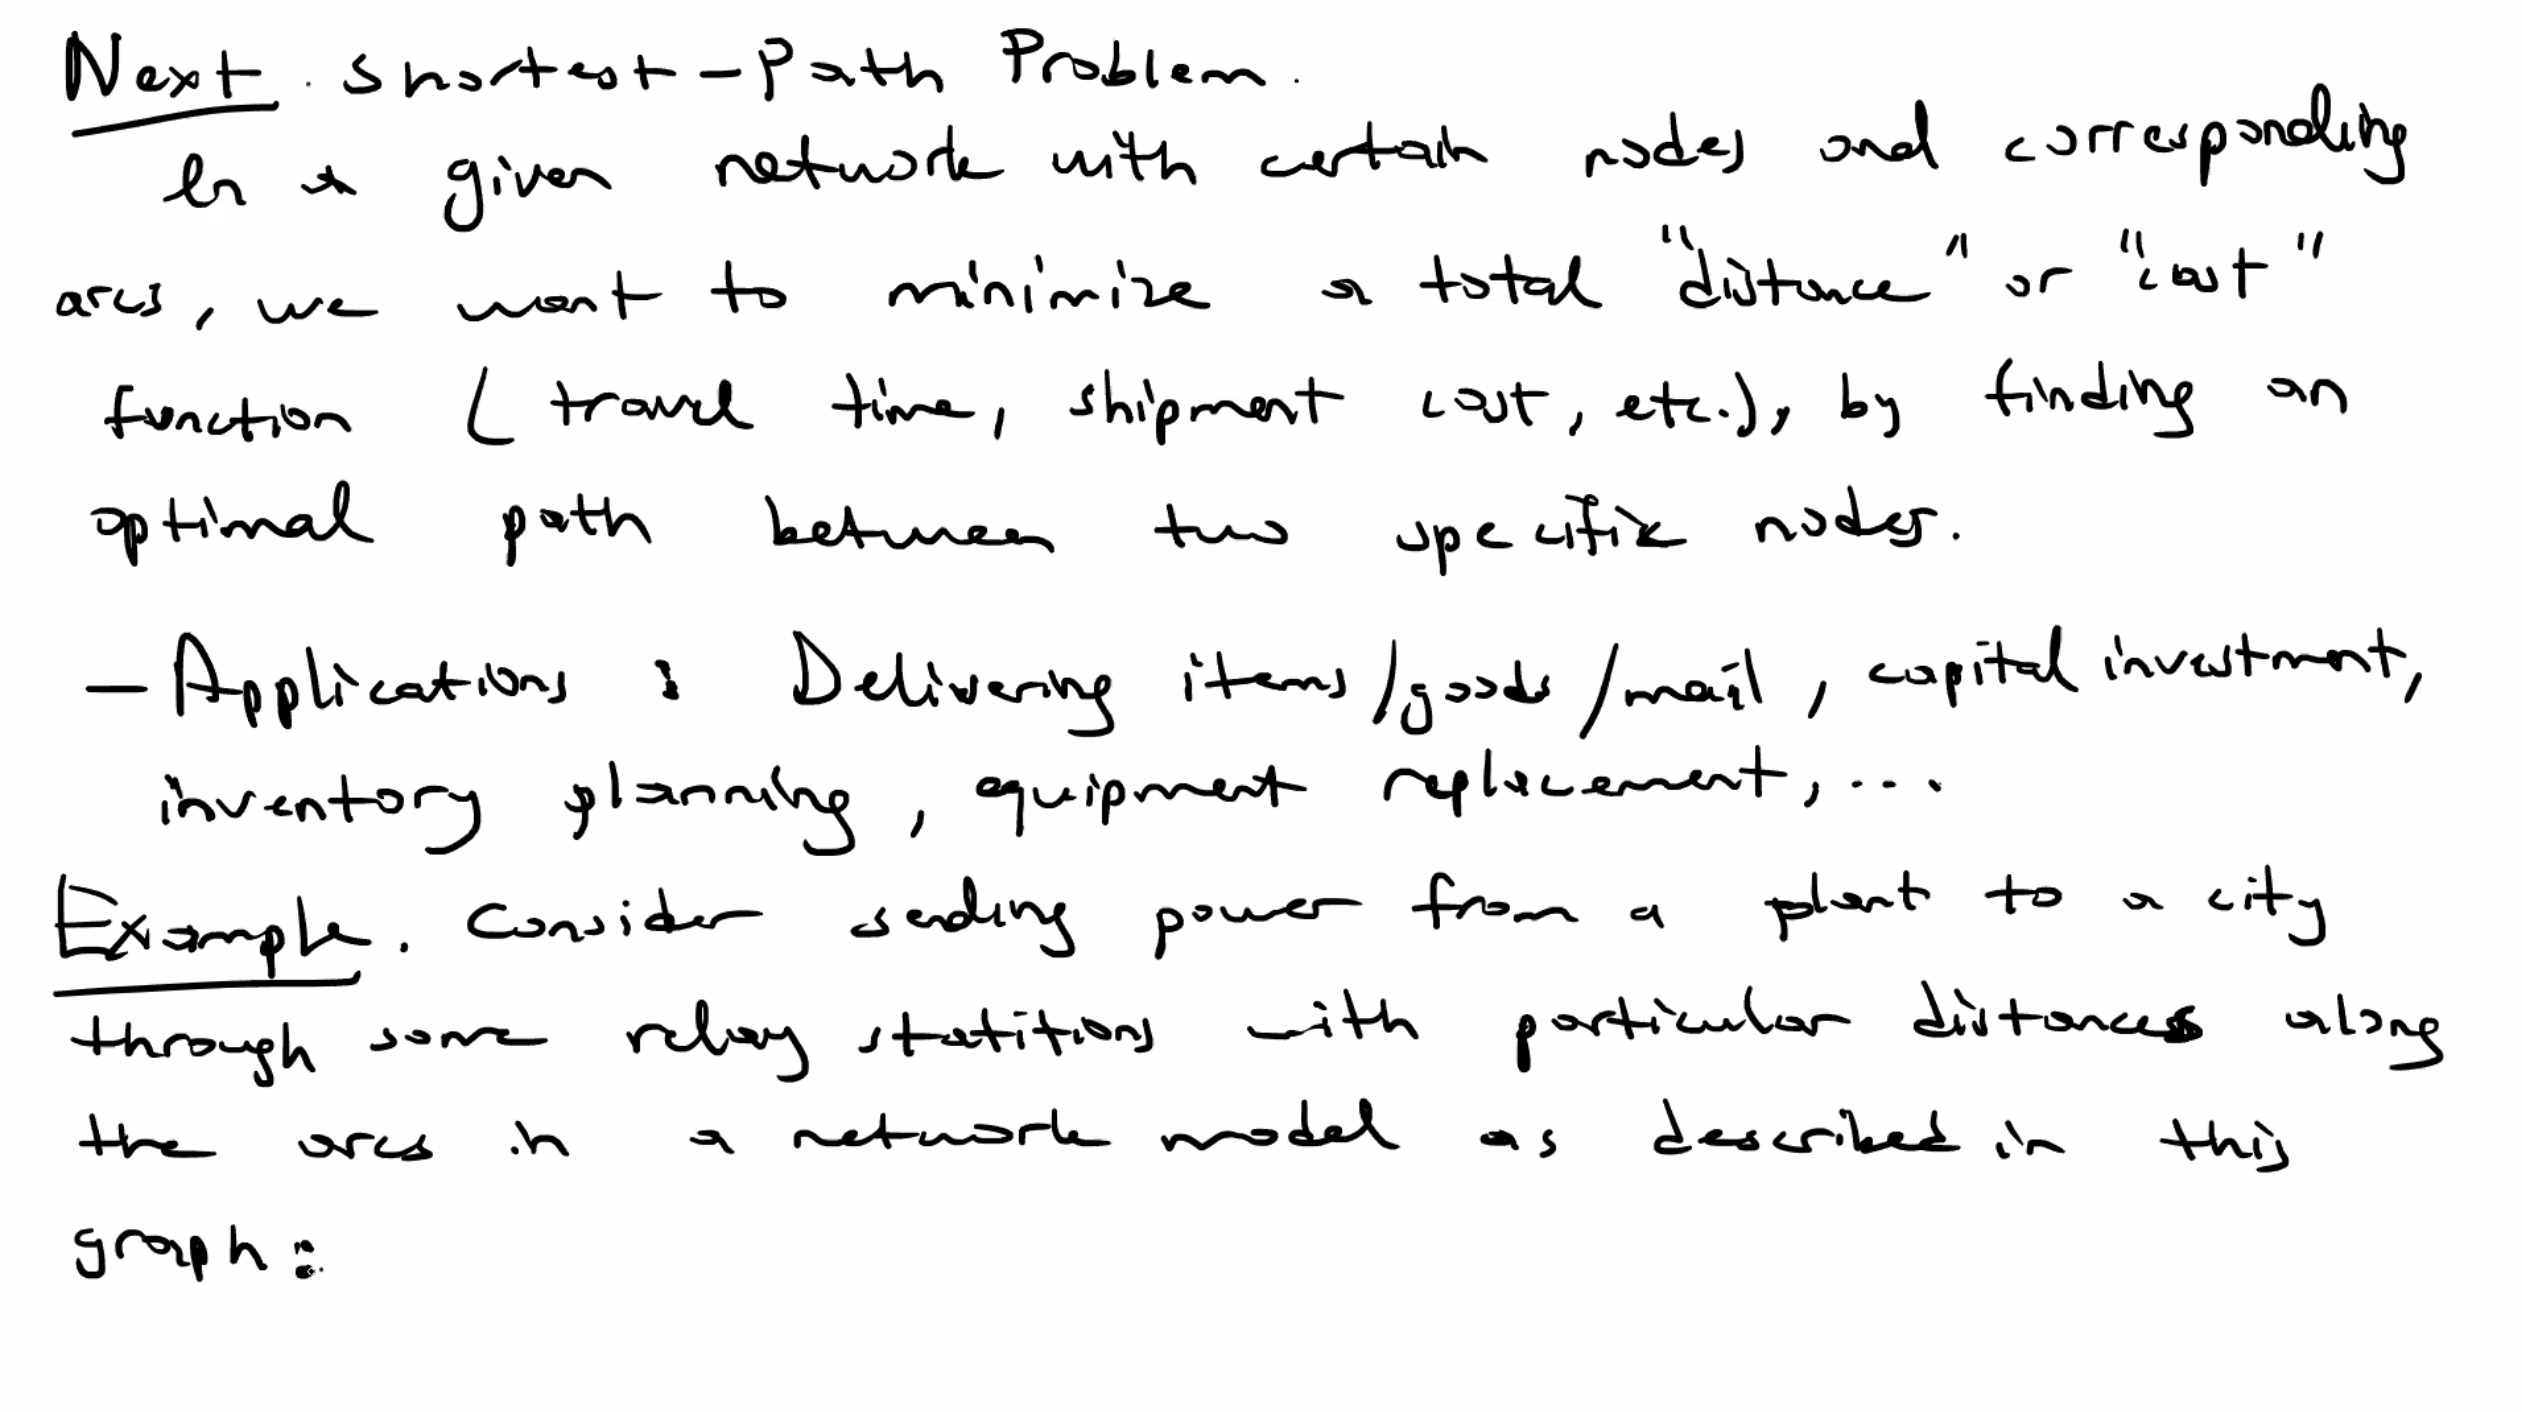 Next. Shortest-Path Problem.
In a given network with certain nodes and corresponding
arcs, we want to minimize a total "distance" or "cost"
function (travel time, shipment cost, etc.), by finding an
optimal path between two specific nodes.
- Applications: Delivering items/goods/mail, capital investment,
inventory planning, equipment replacement, ...
Example. Consider sending power from a plant to a city
through some relay statitions with particular distances along
the arcs in a network model as described in this
graph: